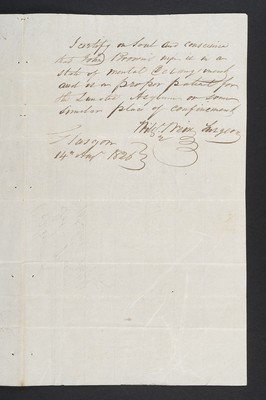 I certify on Soul and conscience
that John Thomas is in a
state of mental derangement
and is a proper patient for
the Lunatic Asylum or some
similar place of confinement
Surgeon
Glasgow
14th Augt 1826